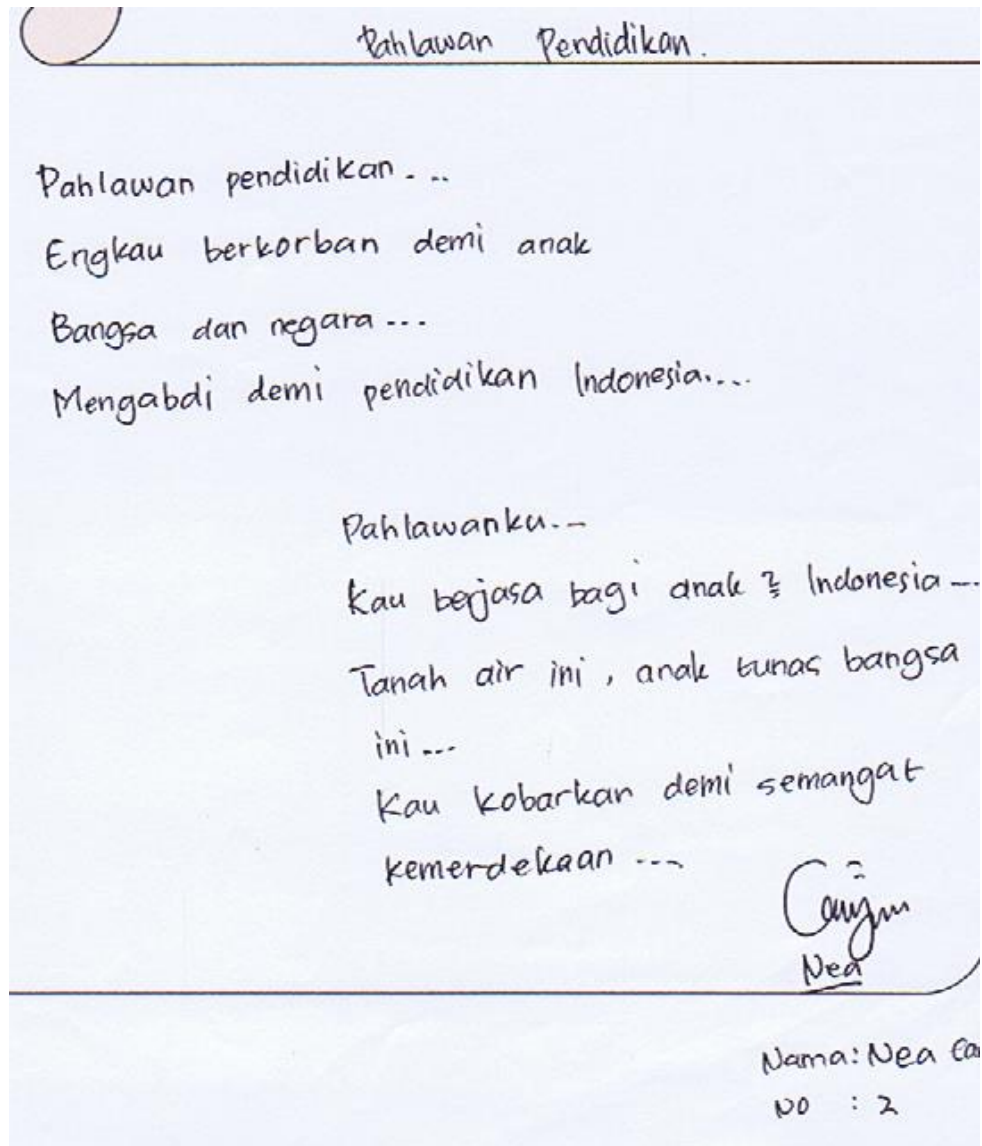 Pahlawan Pendidikan.
Pahlawan pendidikan...
Engkau berkorban demi anak
Bangsa dan negara...
Mengabdi demi pendidikan Indonesia....
Pahlawanku...
Kau berjasa bagi anak 2 Indonesia...
Tanah air ini, anak tunas bangsa
ini...
Kau kobarkan demi semangat
kemerdekaan ...
Nea
Nama: Nea
NO : 2